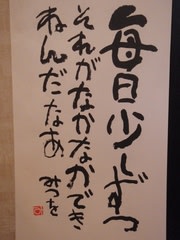 毎日少しずつ
それがなかなかでき
ねんだなあ
みつを